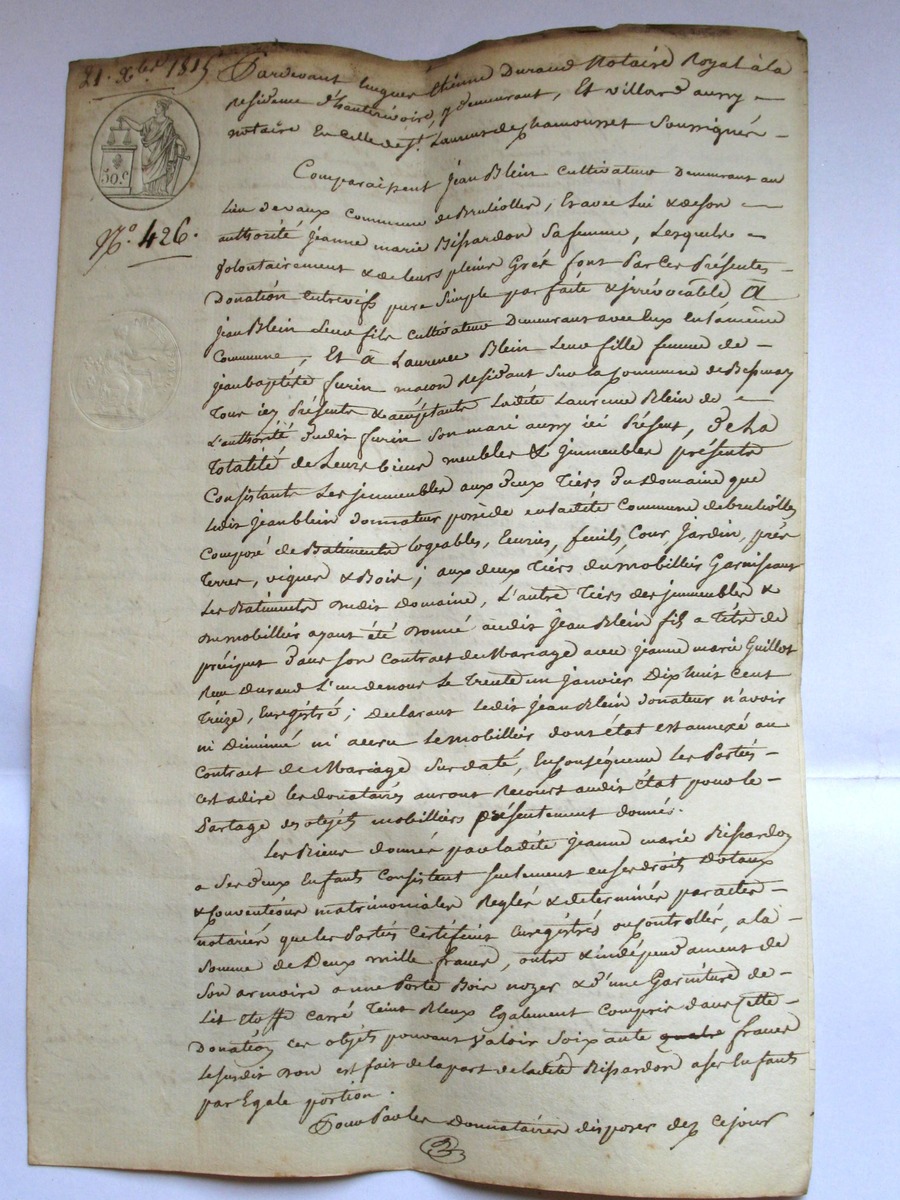 21. Xbre 1815
50.C
N.o 426.
Pardevant Hugues Etienne Durand Notaire Royal à la
residence d'hauterivoire, y demeurant, Et Villard aussy
notaire En Celle de St. Laurent de Chamousset Soussignés
Comparaissent Jean Blein Cultivateur Demeurant au
Lieu de vaux Commune de Brulliolles, Et avec Lui & de son
authorité Jeanne marie Bissardon Sa femme, Lesquels
Volontairement & de leurs pleins Grés font Par Ces Présentes
Donation Entrevifs pure Simple parfaite & irrévocable, A
Jean Blein Leur fils Cultivateur Demeurant avec Eux en la même
Commune, Et à Laurence Blein Leur fille femme de
jean baptiste furin maçon Residant Sur la Commune de Bessenay
Tous icy Présents & acceptants Ladite Laurence Blein de
L'authorité dudit furin Son mari aussy ici Présent, De La
Totalité de Leurs biens meubles & immeubles présents
Consistants Les immeubles aux deux Tiers du Domaine que
Ledit Jean blein donnateur possède en Ladite Commune de brulliolles
Composé de Batiments logeables, Ecuries, fenils, Cour, Jardin, prés
Terres, vignes & Bois; aux deux Tiers du mobillier Garnissant
Les Batiments dudit Domaine, L'autre Tiers des immeubles &
du mobillier ayant été donné audit Jean Blein fils a Titre de
préciput Dans Son Contrat de Mariage avec jeanne marie Guillot
Reçu Durand L'un de nous Le Trente un janvier Dix huit Cent
Treize, Enregistré; declarant Ledit Jean Blein donateur n'avoir
ni Diminué ni accru Le mobillier dont état est annexé au
Contrat de Mariage Sus daté, En Conséquence les Parties
C'est adire les donataires auront Recours audit État pour le
Partage des objets mobilliers présentement donnés.
Les Biens donnés par Ladite Jeanne marie Bissardon
a Ses deux Enfants Consistent Seulement en ses droits Dotaux
& Conventions matrimoniales Reglés & determinés par actes
notariés que les Parties Certifient Enregistrés ou Controllés, a la
Somme de Deux mille francs, outre & indépendament de
Son armoire a une Porte Bois noyer & d'une Garniture de
Lit Etoffe Carré Teint Bleux Egalement Compris dans Cette
Donation ces objets pouvant Valoir Soixante quatre francs
Le Susdit don est fait de la part de ladite Bissardon a ses Enfants
par Egale portion.
Pour Par les Donnataires disposer dez Ce jour